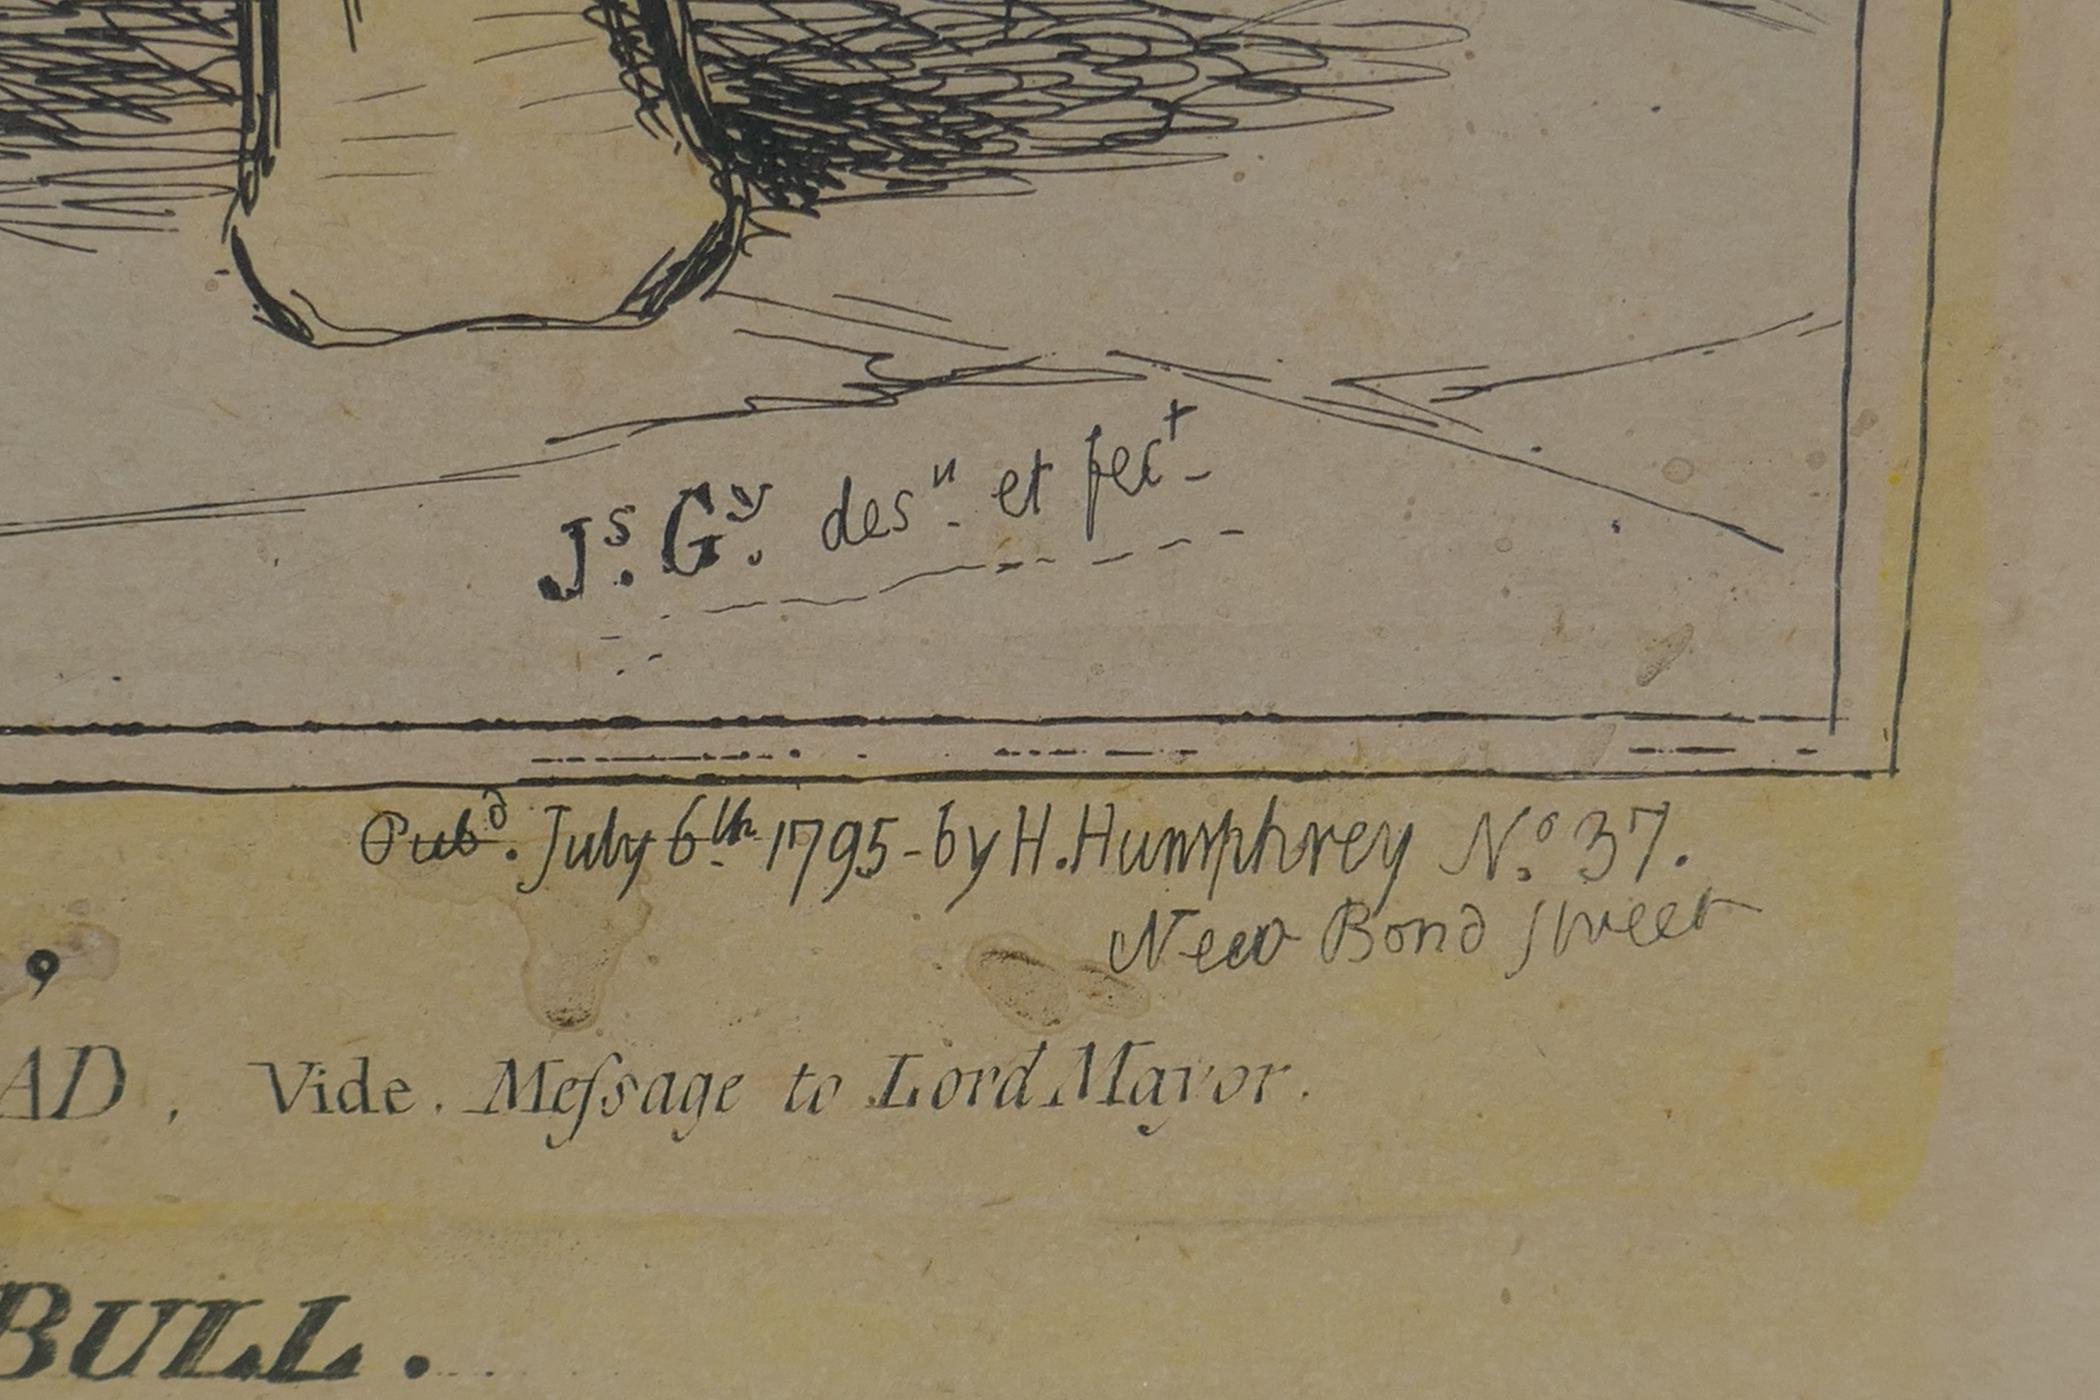 Jˢ. Gʸ. desⁿ. et fecᵗ
Pubᵈ. July 6th 1795 - by H. Humphrey Nº. 37.
New Bond Street
,
AD, Vide. Meſsage to Lord Mayor.
BULL.